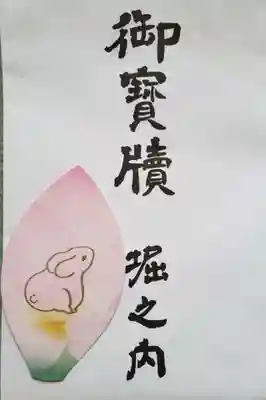 御寶牘
堀之内